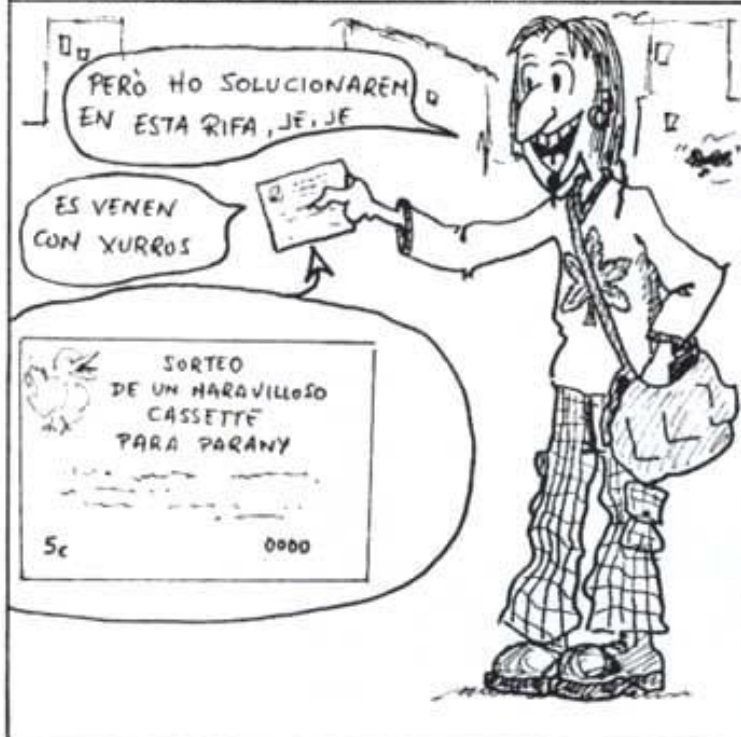 PERÒ HO SOLUCIONAREM
EN ESTA RIFA, JE, JE
ES VENEN
COM XURROS
SORTEO
DE UN MARAVILLOSO
CASSETTE
PARA PARANY
5€
0000